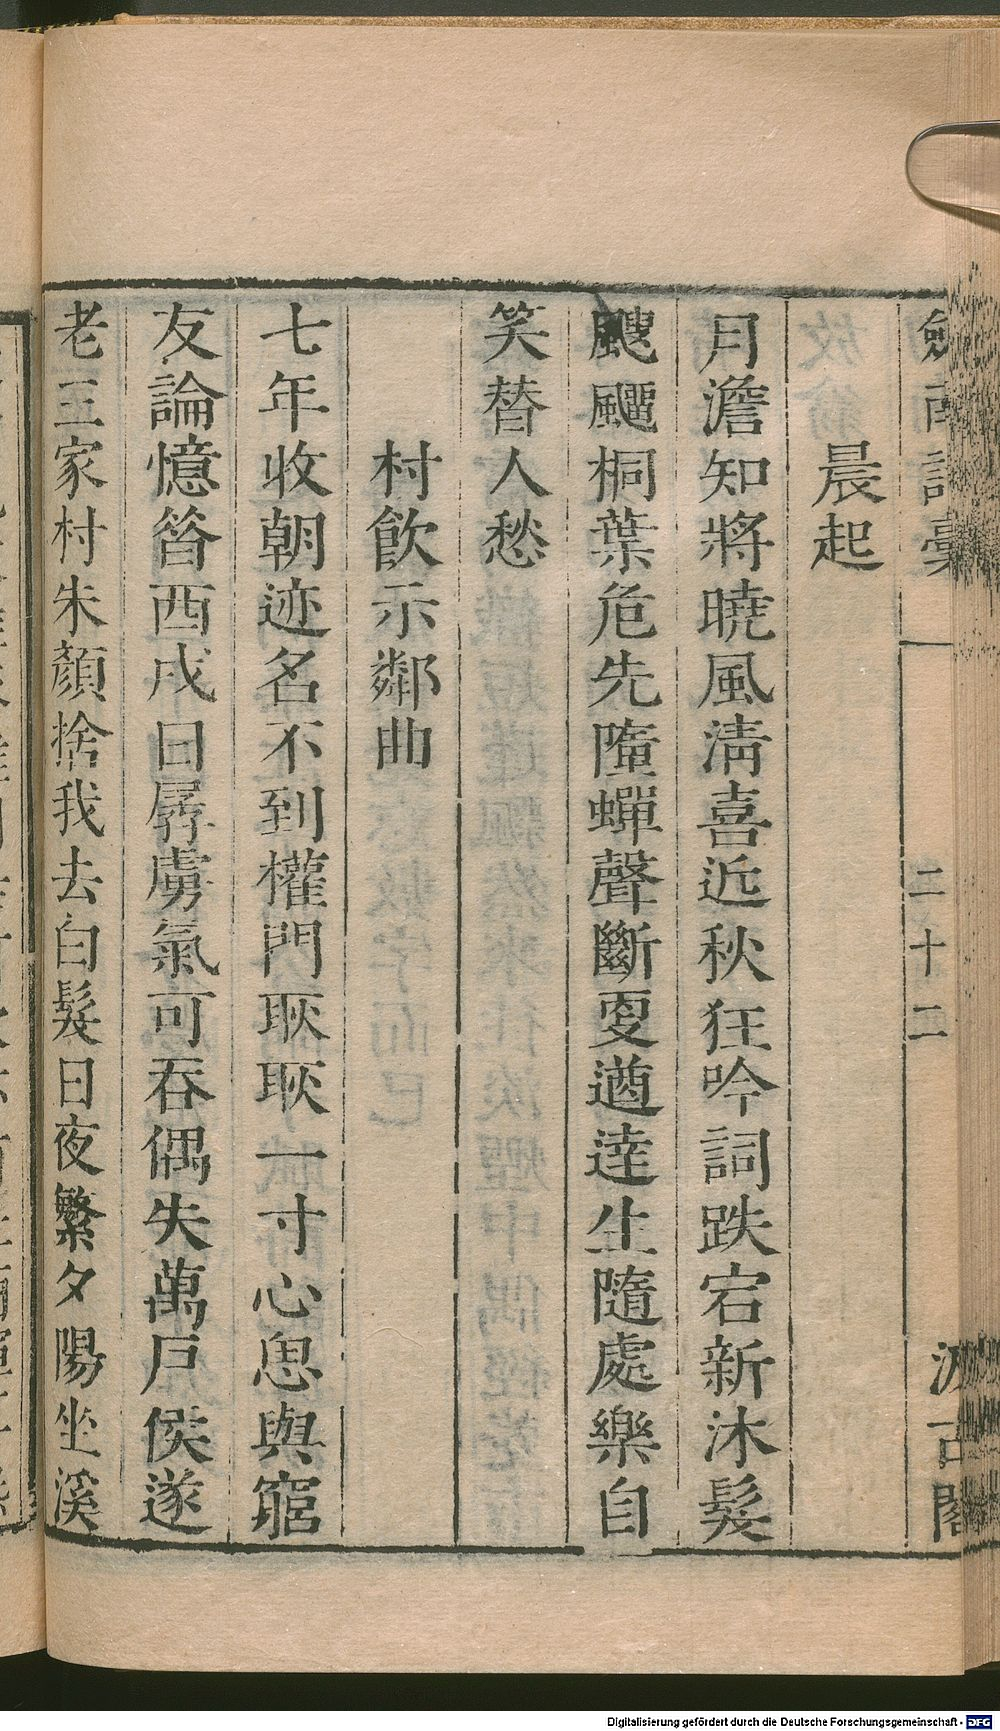 劒南詩稾
二十二
汲古閣
晨起
月澹知將曉風淸喜近秋狂吟詞跌宕新沐髮
颼飀桐葉危先墮蟬聲斷更遒達生隨處樂自
笑替人愁
村飮示鄰曲
七年收朝迹名不到權門耿耿一寸心思與窮
友論憶昝西戍日孱虜氣可吞偶失萬戶侯遂
老三家村朱顏捨我去白髮日夜繁夕陽坐溪
Digitalisierung gefördert durch die Deutsche Forschungsgemeinschaft - DFG